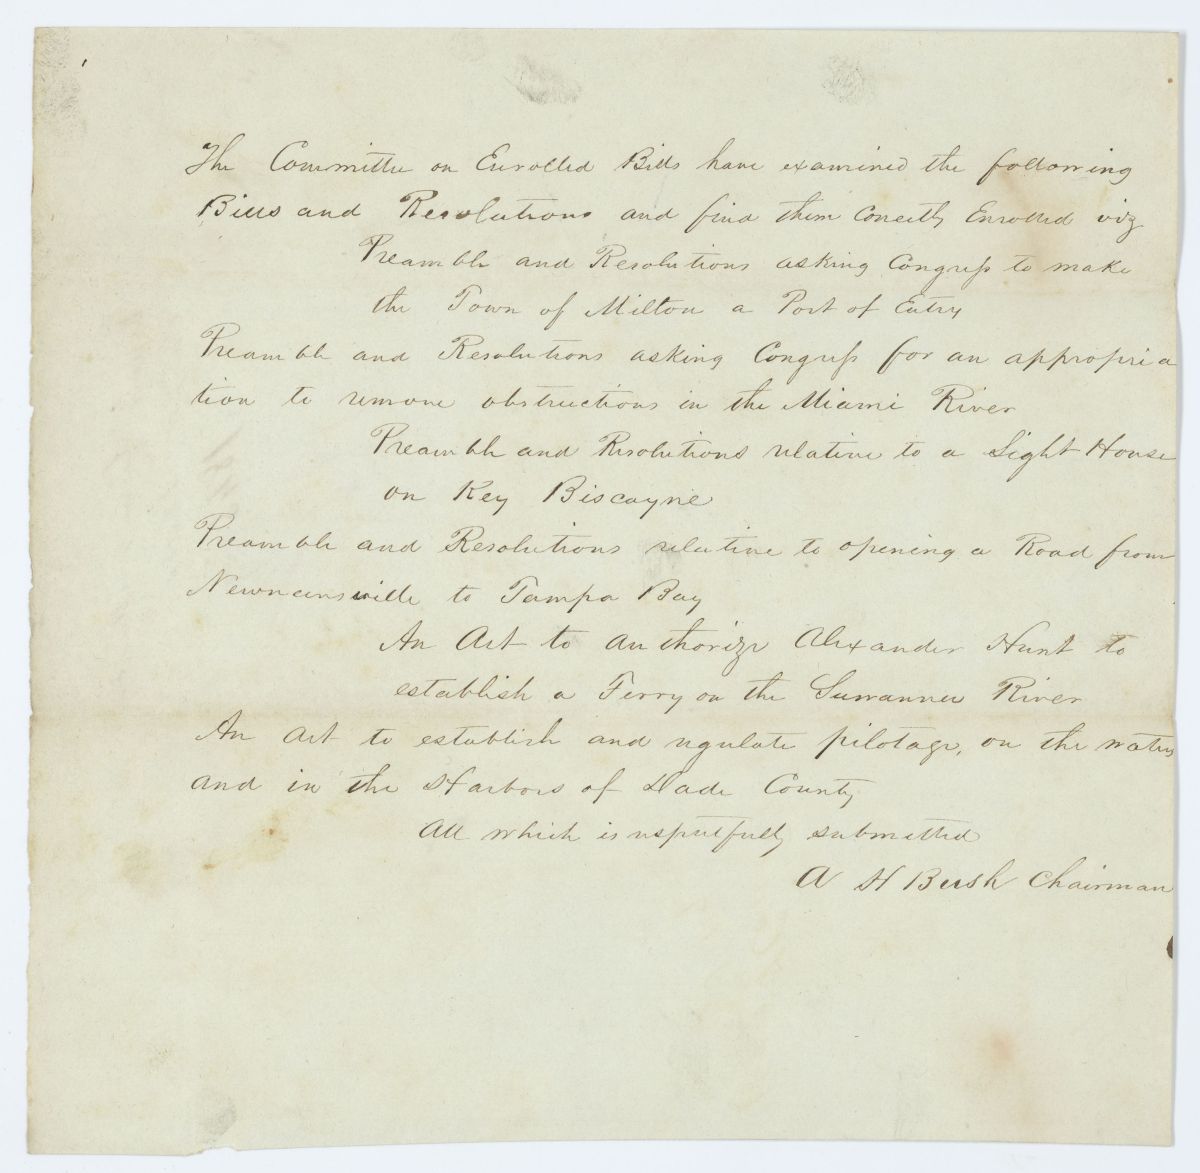 The Committee on Enrolled Bills have examined the following
Bills and Resolutions and find them Correctly Enrolled viz
Preamble and Resolutions asking Congress to make
the Town of Milton a Port of Entry
Preamble and Resolutions asking Congress for an appropria
tion to remove obstructions in the Miami River
Preamble and Resolutions relative to a Light House
on Key Biscayne
Preamble and Resolutions relative to opening a Road from
Newnansville to Tampa Bay
An Act to authorize Alexander Hunt to
establish a Ferry on the Suwannee River
An Act to establish and regulate pilotage, on the waters
and in the Harbors of Dade County
All which is respectfully submitted
A H Bush Chairman